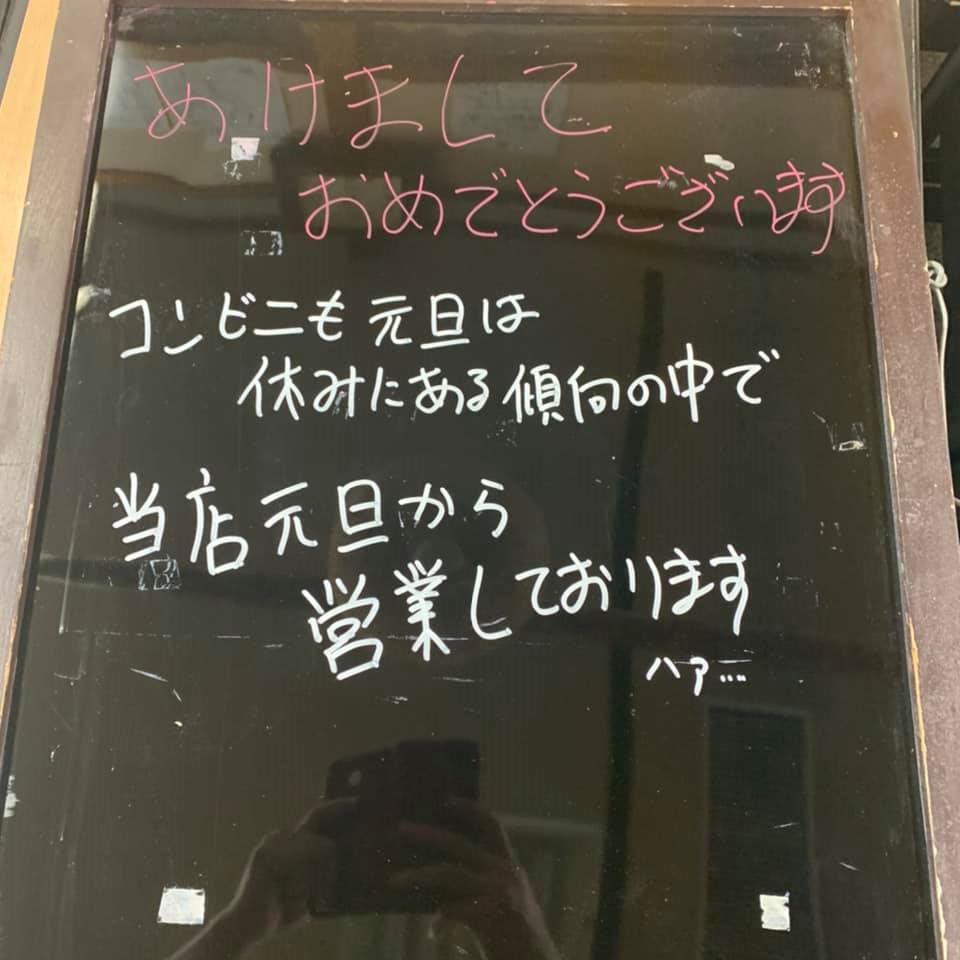 あけまして
おめでとうございます
コンビニも元旦は
休みにある傾向の中で
当店元旦から
営業しております
ハァ…